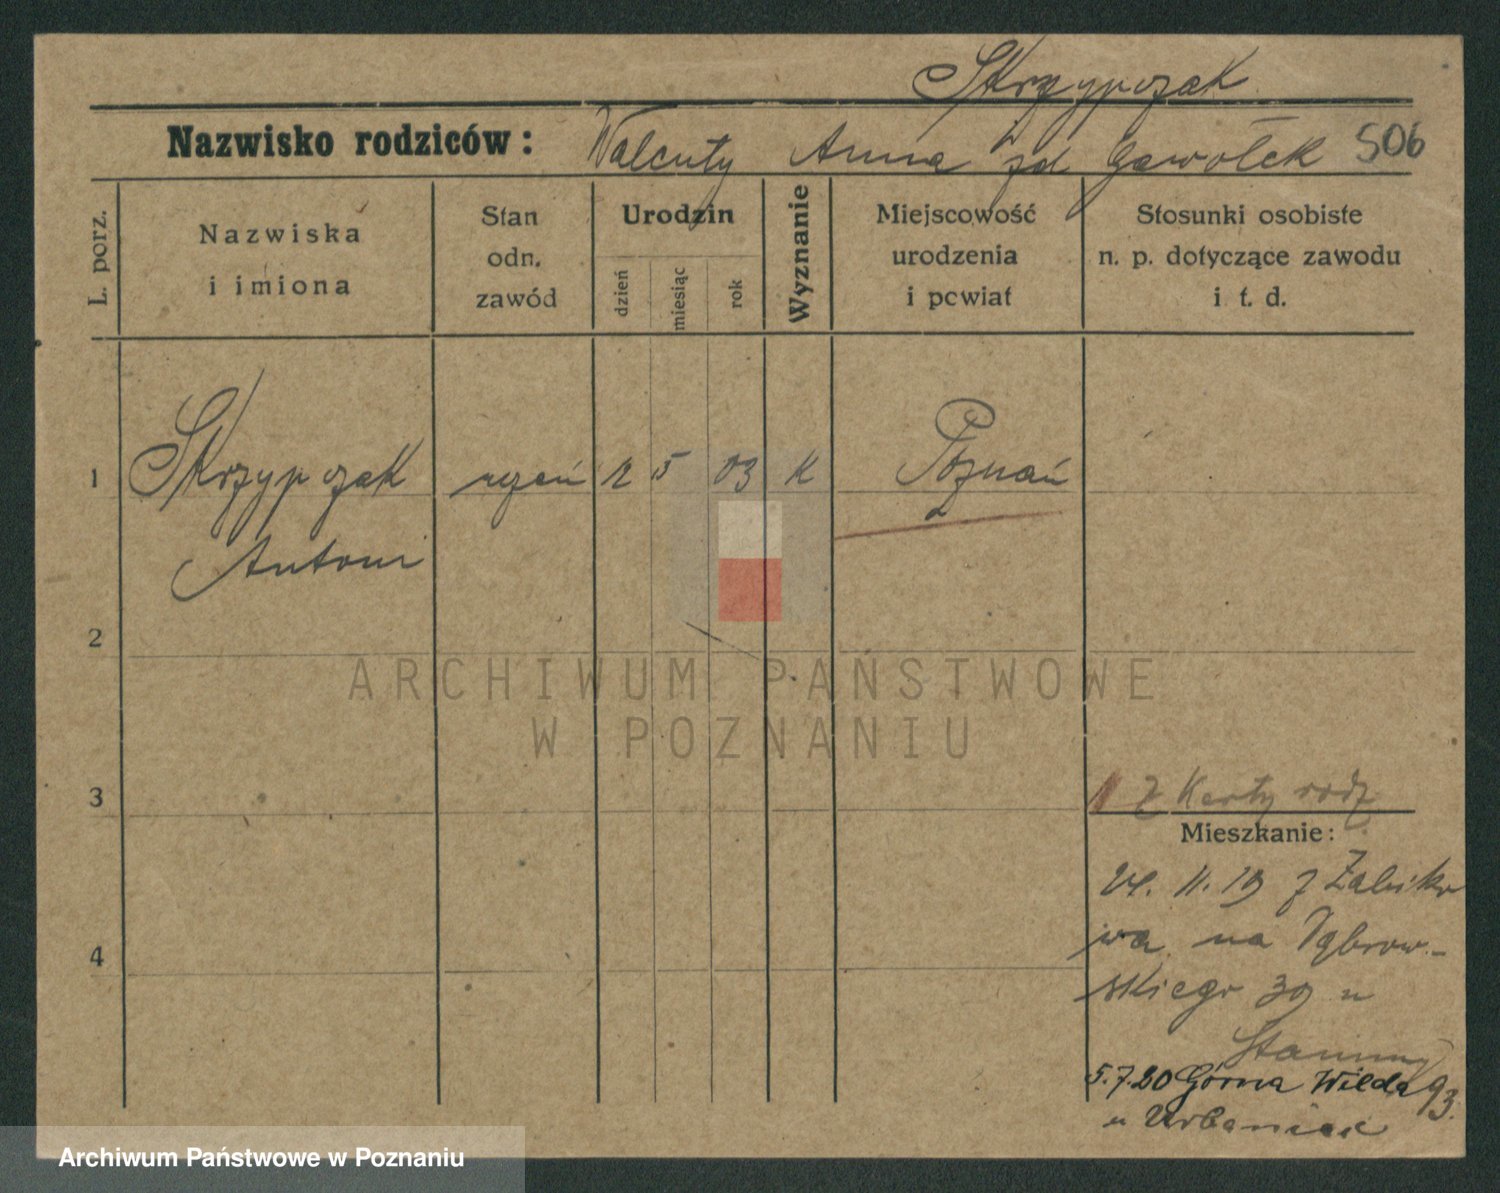 Skrzypczak
Nazwisko rodziców: Walenty Anna zd Gawołek 506
L. porz.
Nazwiska
i imiona
Stan
odn.
zawód
Urodzin
dzień
miesiąc
rok
Wyznanie
Miejscowość
urodzenia
i powiat
Stosunki osobiste
n. p. dotyczące zawodu
i t. d.
1 Skrzypczak uczeń 12 5 03 K Poznań
Antoni
2
3
4
z Karty rodz
Mieszkanie:
24. 11. 19 z Żabiko
wa na Dąbrow-
skiego 39 u
5.7.20 Górna Wilda 93.
u Urbaniak
ARCHIWUM PAŃSTWOWE
W POZNANIU
Archiwum Państwowe w Poznaniu